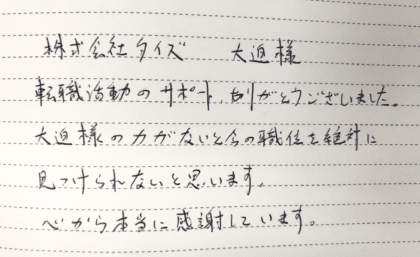 株式会社タイズ 大迫様
転職活動のサポート、ありがとうございました。
大迫様の力がないと今の職位を絶対に
見つけられないと思います。
心から本当に感謝しています。